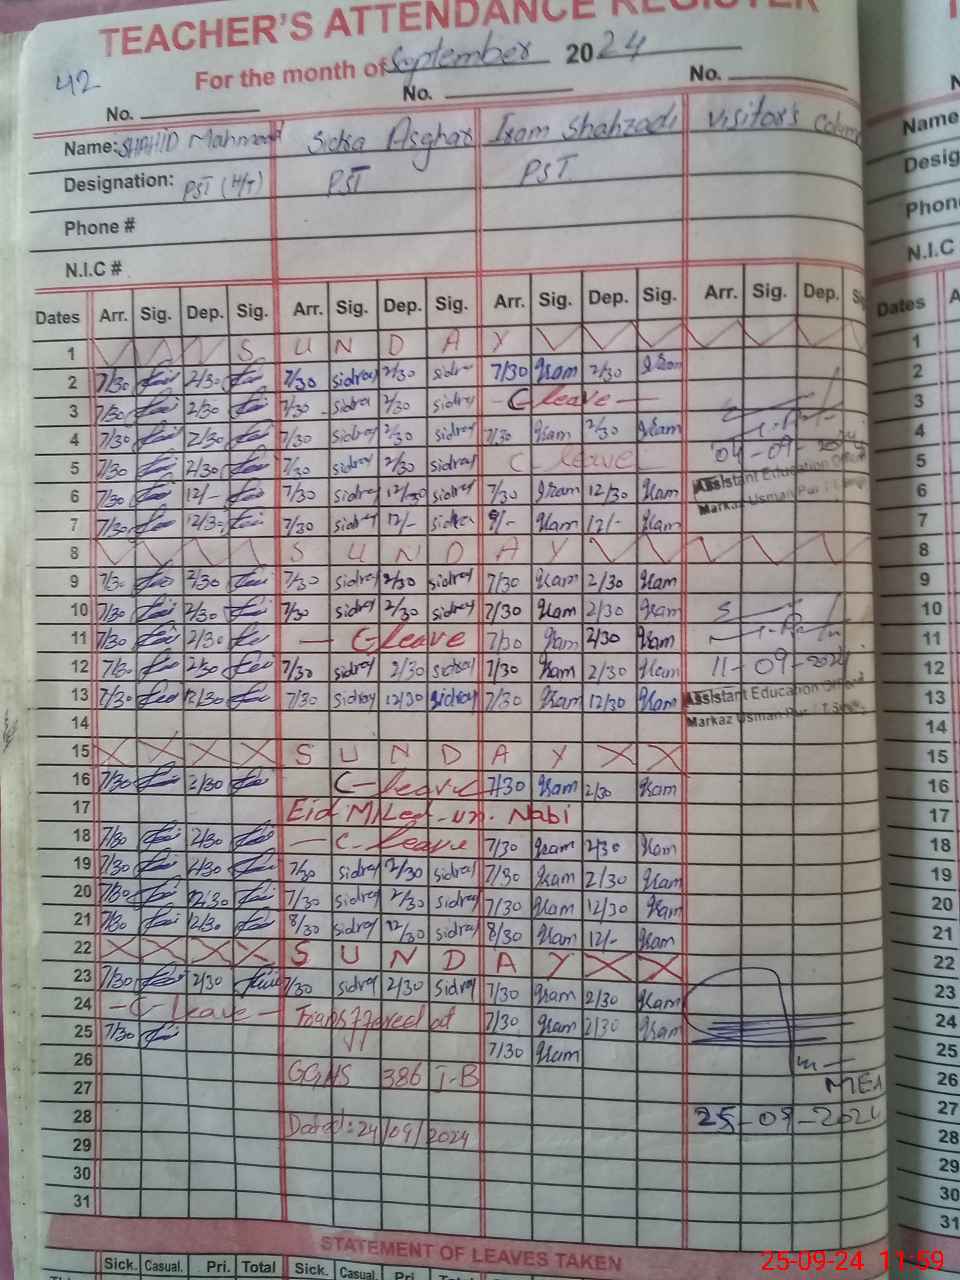 TEACHER'S ATTENDANCE REGISTER
42 For the month of September 2024
No. No. No.
Name: SHAHID Mahmood Sidra Asghar Iram Shahzadi Visitor's Column
Designation: PST (H/T) PST PST
Phone #
N.I.C #
Dates Arr. Sig. Dep. Sig. Arr. Sig. Dep. Sig. Arr. Sig. Dep. Sig. Arr. Sig. Dep.
1 S U N D A Y
2 7/30 2/30 7/30 sidray 2/30 sidra 7/30 Iram 2/30 Iram
3 7/30 2/30 7/30 sidra 2/30 sidray - C leave -
4 7/30 2/30 7/30 sidray 2/30 sidray 7/30 Iram 2/30 Iram
5 7/30 2/30 7/30 sidray 2/30 sidray C - leave 04-09-2024
6 7/30 12/- 7/30 sidray 12/30 sidray 7/30 Iram 12/30 Iram Assistant Education Officer
7 7/30 12/30 7/30 sidray 12/- sidra 8/- Iram 12/- Iram Markaz Usman Pur
8 S U N D A Y
9 7/30 2/30 7/30 sidray 2/30 sidray 7/30 Iram 2/30 Iram
10 7/30 2/30 7/30 sidray 2/30 sidray 7/30 Iram 2/30 Iram
11 7/30 2/30 - C leave 7/30 Iram 2/30 Iram
12 7/30 2/30 7/30 sidray 2/30 sidray 7/30 Iram 2/30 Iram 11-09-2024
13 7/30 12/30 7/30 sidray 12/30 sidray 7/30 Iram 12/30 Iram Assistant Education Officer
14 Markaz Usman Pur
15 S U N D A Y
16 7/30 2/30 C-leave 7/30 Iram 2/30 Iram
17 Eid Milad-un-Nabi
18 7/30 2/30 - C-leave 7/30 Iram 2/30 Iram
19 7/30 2/30 7/30 sidray 2/30 sidray 7/30 Iram 2/30 Iram
20 7/30 12/30 7/30 sidray 2/30 sidray 7/30 Iram 12/30 Iram
21 7/30 12/30 8/30 sidray 12/30 sidray 8/30 Iram 12/- Iram
22 S U N D A Y
23 7/30 2/30 7/30 sidray 2/30 Sidray 7/30 Iram 2/30 Iram
24 - C leave - Transffered at 7/30 Iram 2/30 Iram
25 7/30 7/30 Iram
26 GGHS 386 T-B MEA
27 25-09-2024
28 Dated: 24/09/2024
29
30
31
STATEMENT OF LEAVES TAKEN
Sick. Casual. Pri. Total Sick. Casual. Pri. Total
Name
Desig
Phon
N.I.C
Dates A
1
2
3
4
5
6
7
8
9
10
11
12
13
14
15
16
17
18
19
20
21
22
23
24
25
26
27
28
29
30
31
25-09-24 11:59